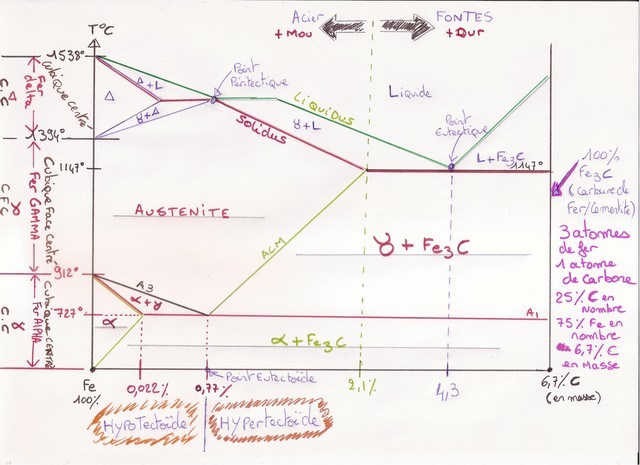 Acier
+ Mou
FONTES
+ Dur
T°C
1538°
1394°
1147°
912°
727°
Fer delta
Cubique centré
C.C
Δ
Fer GAMMA
Cubique Face Centré
C.F.C
γ
Fer ALPHA
Cubique CENTRÉ
C.C
Δ+L
Δ
γ+Δ
Point Péritectique
Liquidus
Solidus
γ+L
Liquide
Point Eutectique
L+Fe3C
1147°
AUSTENITE
ACM
γ + Fe3C
A3
α+γ
α
A1
α+Fe3C
Point Eutectoïde
Fe
100%
0,022%
0,77%
2,1%
4,3
6,7% C
(en masse)
HYPOTectoïde
HYPertectoïde
100%
Fe3C
(carbure de
Fer/Cementite)
3 atomes
de fer
1 atome
de Carbone
25% C en
Nombre
75% Fe en
nombre
6,7% C
en Masse